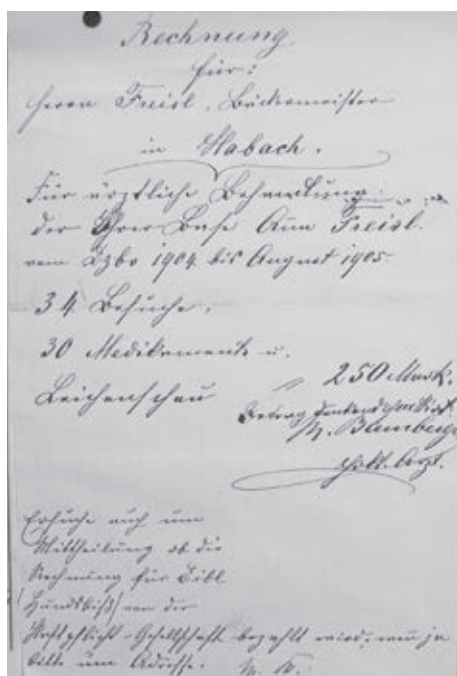 Rechnung
für:
Herrn Freisl, Bäckermeister
in Habach.
Für ärztliche Behandlung
der Ihrer Base Anna Freisl.
vom Dzbr 1904 bis August 1905.
34 Besuche,
30 Medikamente u.
Leichenschau
" 250 Mark.
Betrag dankend
M. Bamberger
prakt. Arzt.
Ersuche auch um
Mittheilung ob die
Rechnung für Bibl
(Hundsbiß) von der
Haftpflicht-Gesellschaft bezahlt wird; wenn ja
bitte um Adresse.